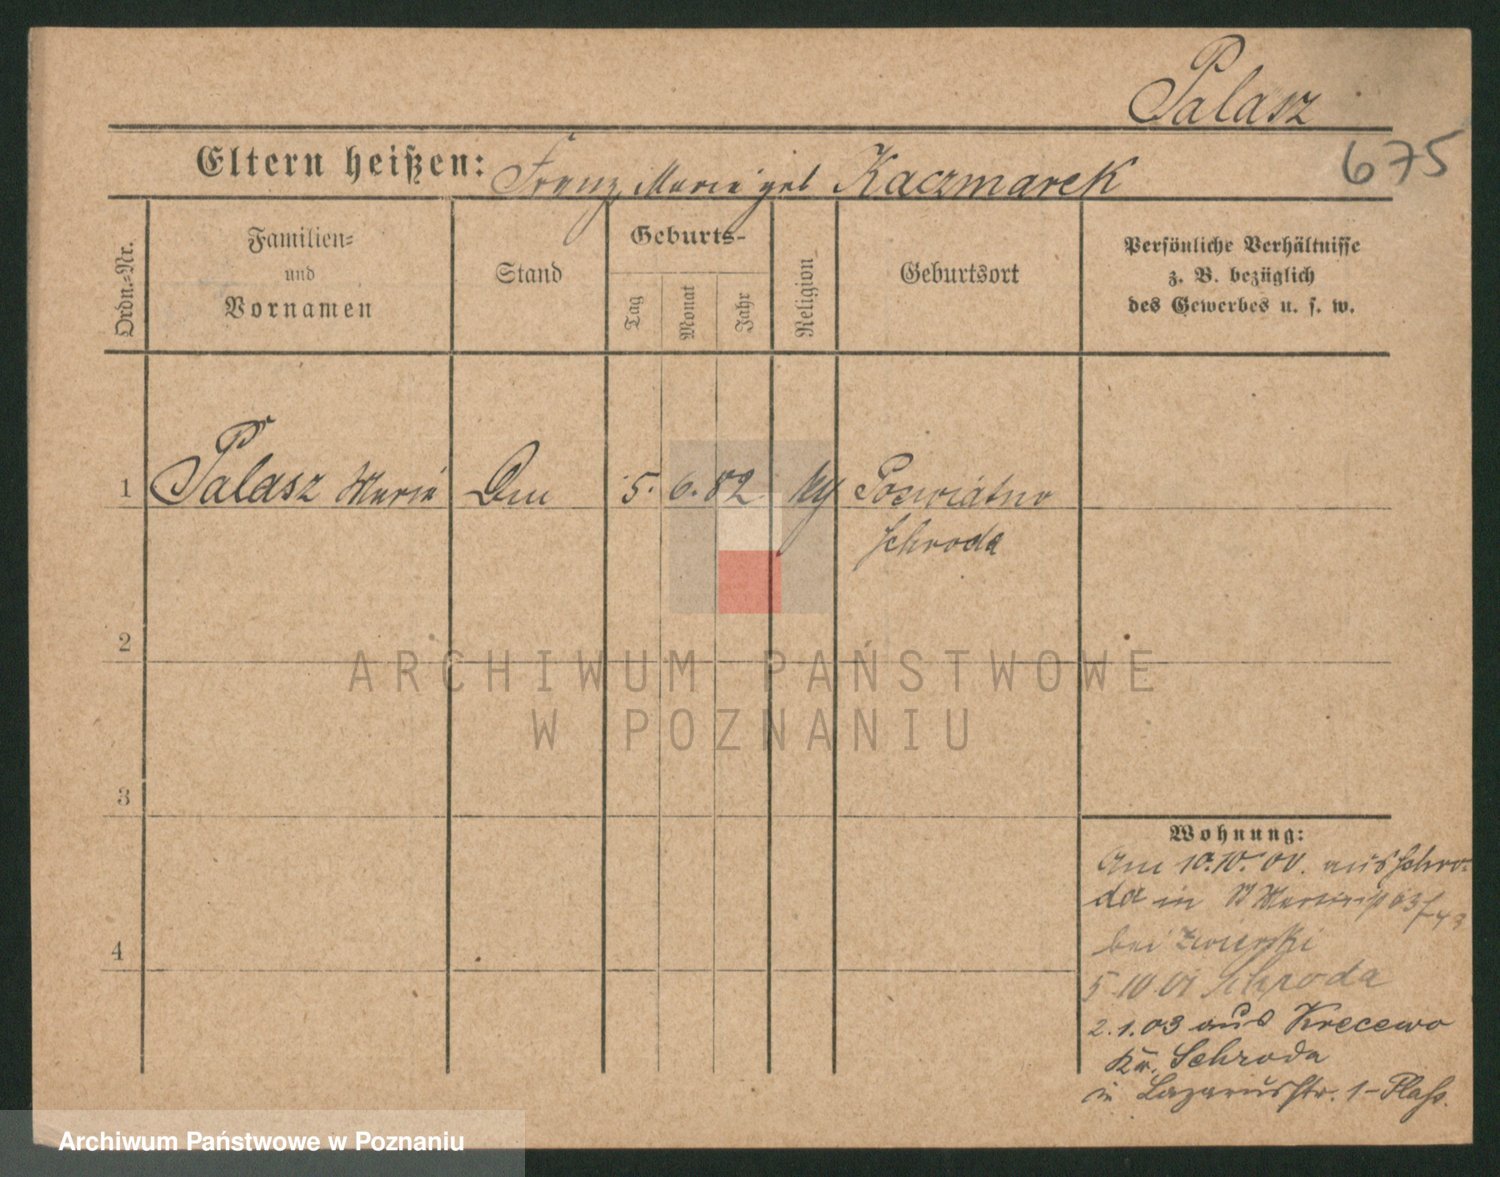 Palasz
675
Eltern heißen: Franz, Marie geb Kaczmarek
Ordn.=Nr.
Familien=
und
Vornamen
Stand
Geburts-
Tag
Monat
Jahr
Religion
Geburtsort
Persönliche Verhältnisse
z. B. bezüglich
des Gewerbes u. s. w.
1 Palasz Marie 5. 6. 82
Schroda
2
3
4
Wohnung:
Am 10.10.00. aus Schro-
da in
bei
5 10 01 Schroda
2.1.03 aus Krecewo
Kr. Schroda
in Lazarusstr. 1-
ARCHIWUM PAŃSTWOWE
W POZNANIU
Archiwum Państwowe w Poznaniu